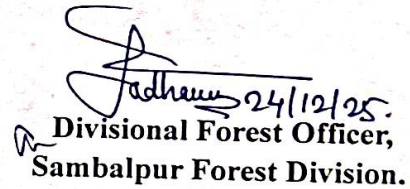 24/12/25.
Divisional Forest Officer,
Sambalpur Forest Division.